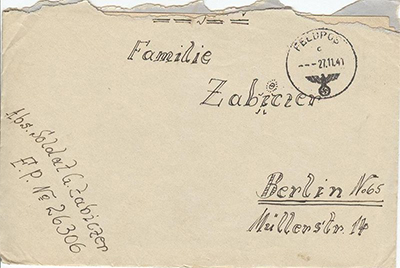 Familie
Zabiczer
FELDPOST
c
---27.11.41
Berlin N.65
Müllerstr. 14
Abs. Soldat G. Zabiczer
F.P. № 26306